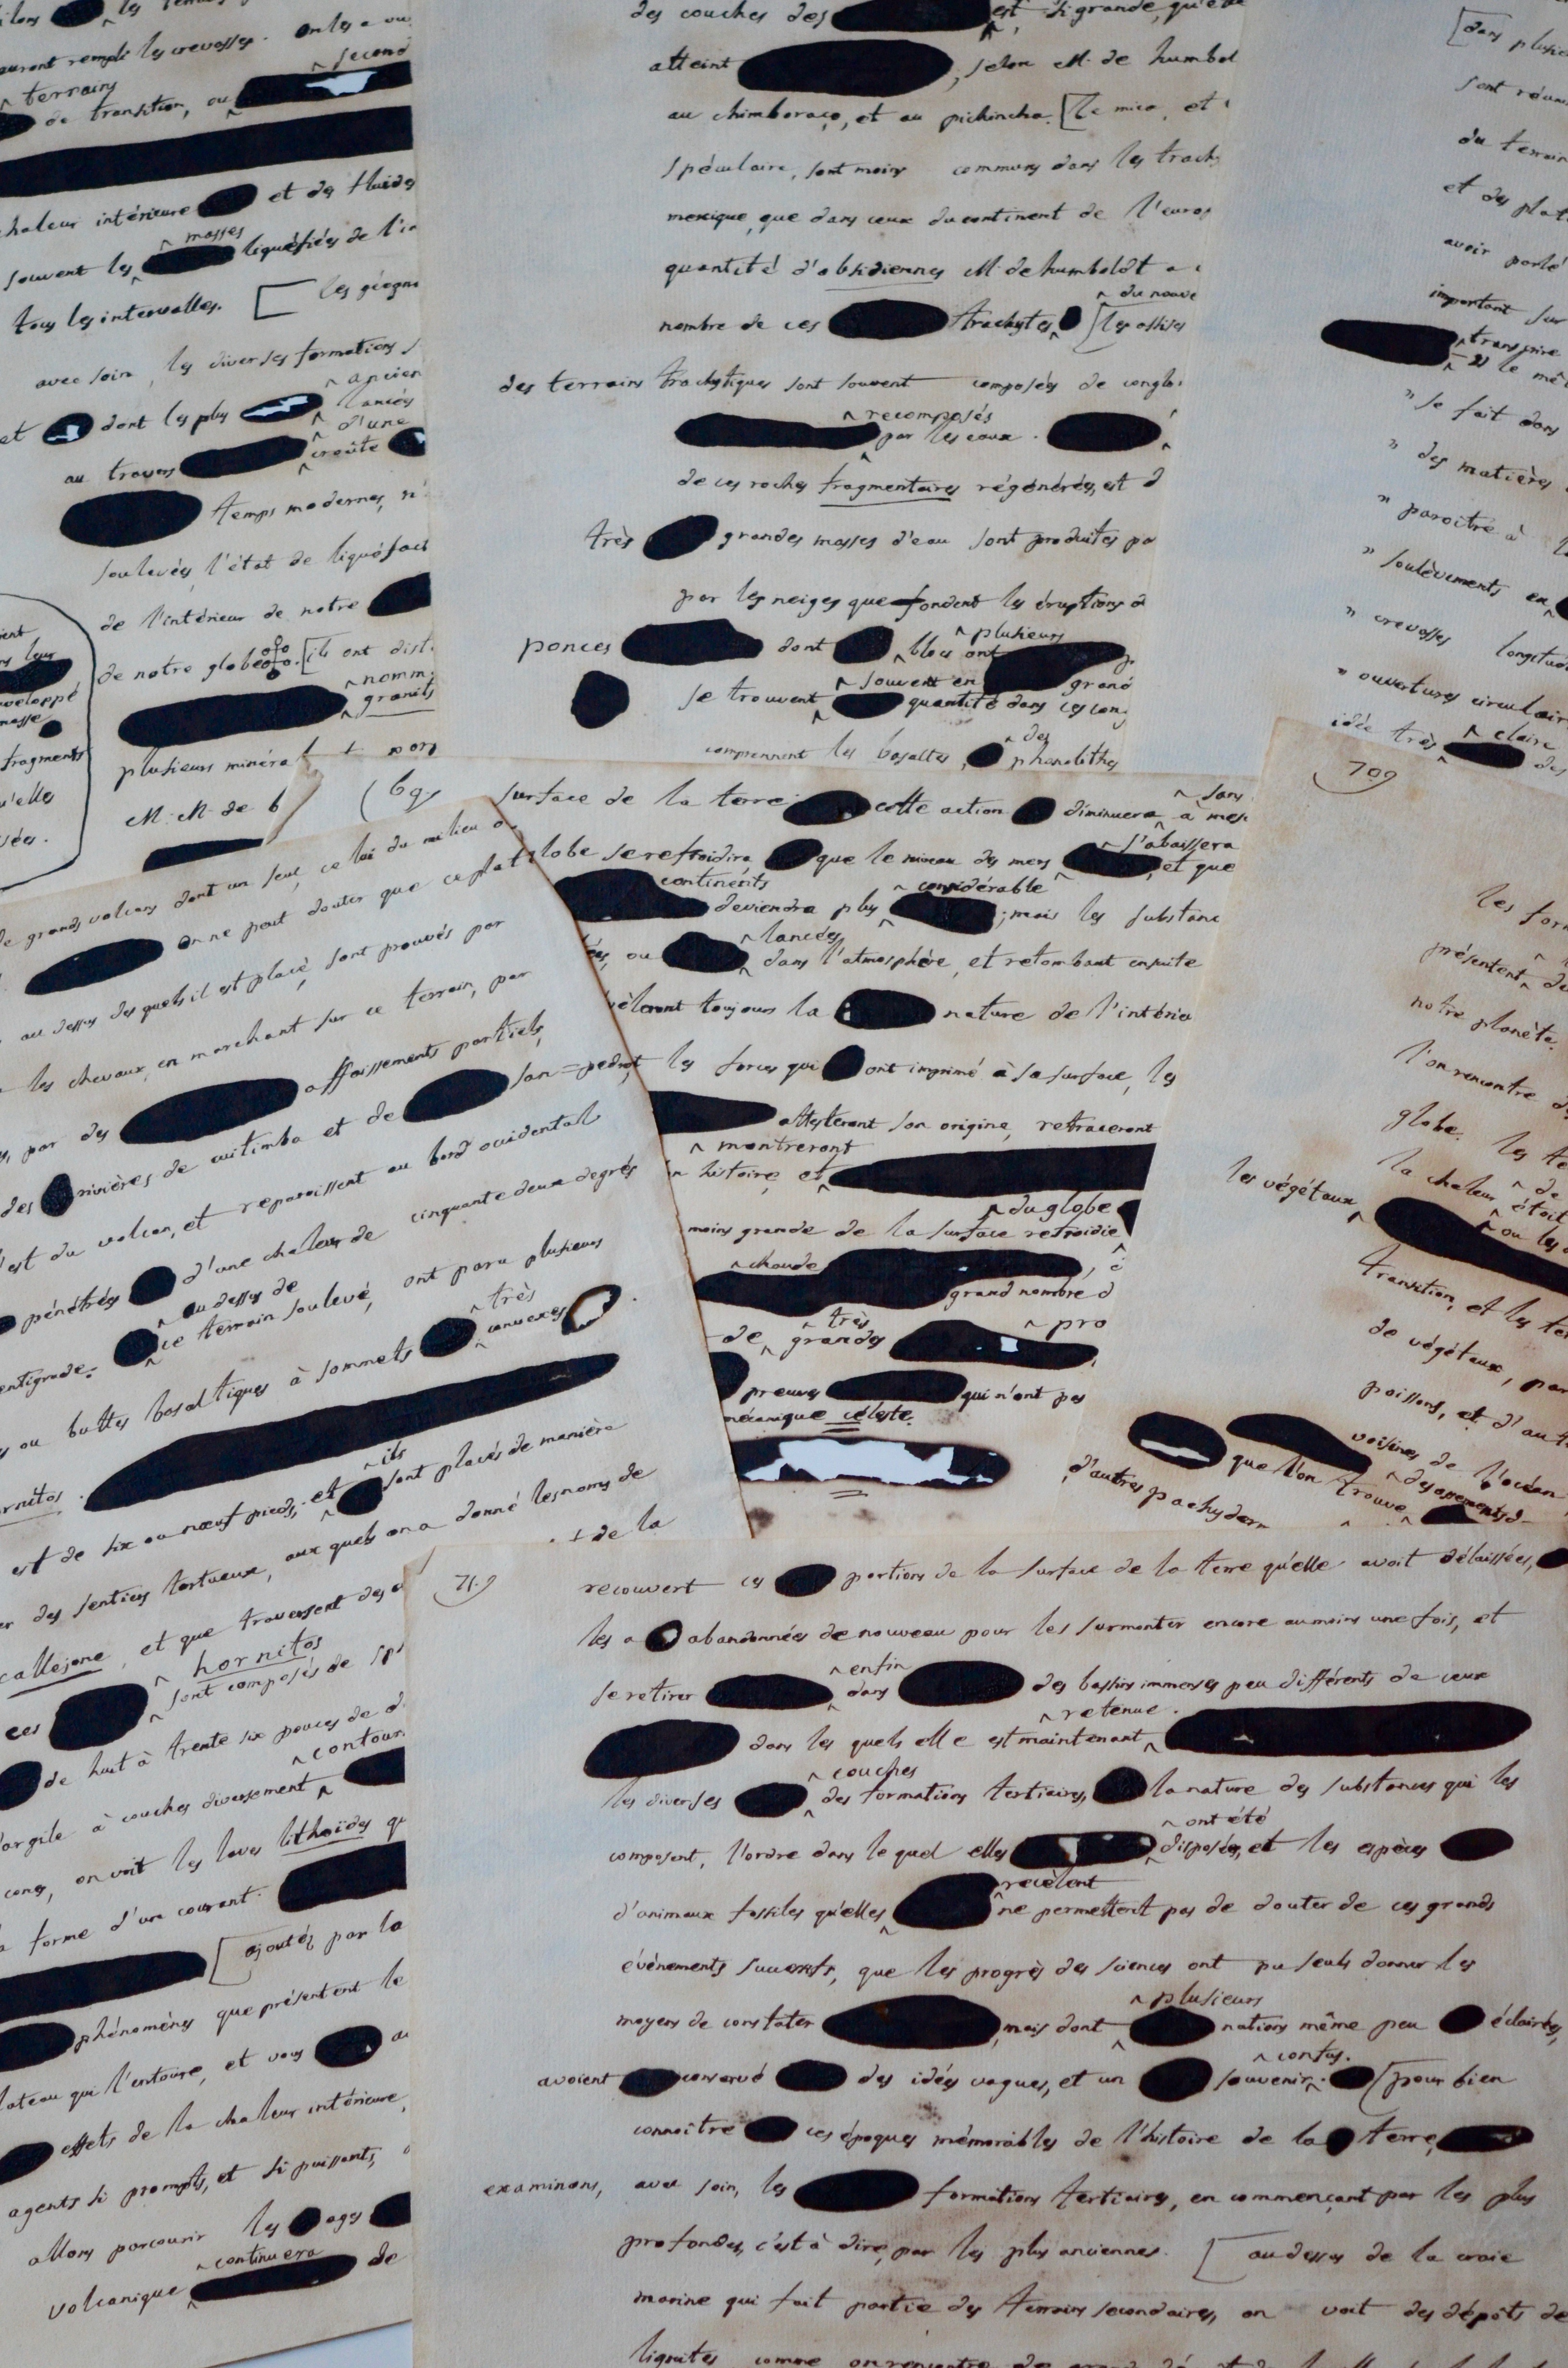 les temps
auront remplis les crevasses. on les a vu
^ second
^ terrains
de transition, ou
chaleur intérieure et des fluides
^ masses
souvent les liquéfiées de l'in
tous les intervalles. [ les géogn
avec soin, les diverses formations
^ ancien
et dont les plus ^ lancés
^ d'une
au travers croûte
temps modernes, n'
soulevés, l'état de liquéfact
de l'intérieur de notre
de notre globe. [ils ont dist
^ nomm
granits
plusieurs minéra
M. M. de b
fragments
qu'elles
des couches des est si grande, qu'elle
atteint , selon M. de humbol
au chimboraço, et au pichincha. [le mica, et
spéculaire, sont moins communs dans les trach
mexique, que dans ceux du continent de l'europ
quantité d'obsidiennes M. de humboldt a
^ du nouve
nombre de ces trachytes [les assises
des terrains trachytiques sont souvent composées de conglo
^ recomposés
par les eaux.
de ces roches fragmentaires régénérées, est d
très grandes masses d'eau sont produites pa
par les neiges que fondent les éruptions d
^ plusieurs
ponces dont blocs ont
^ souvent en grand
se trouvent quantité dans ces con
^ des
comprennent les basaltes, phonolithes
[dans plusie
sont réun
du terrain
et des plat
avoir parlé
important sur
^ transpire
le mê
" se fait dans
" des matières
" paroître à
" soulèvements en
" crevasses longitud
" ouvertures circulair
^ claire
idée très des
69.
surface de la terre cette action diminuera ^ sans
à mes
globe se refroidira que le niveau des mers ^ s'abaissera
et que
continents ^ considérable
deviendra plus ; mais les substanc
^ lancées
ées, ou dans l'atmosphère, et retombant ensuite
èleront toujours la nature de l'intérieu
les forces qui ont imprimé à sa surface, les
attesteront son origine, retraceront
^ montreront
on histoire, et
^ du globe
moins grande de la surface refroidie
^ chaude
grand nombre d
^ très ^ pro
de grandes
preuves qui n'ont pas
mécanique céleste.
de grands volcans dont un seul, celui du milieu a
on ne peut douter que ce plat
au dessus desquels il est placé, sont prouvés par
les chevaux, en marchant sur ce terrain, par
par des affaissements partiels,
des rivières de cuitimba et de san=pedro,
l'est du volcan, et reparoissent au bord occidental
pénétrées d'une chaleur de cinquante deux degrés
^ au dessus de
entigrade. ce terrain soulevé, ont paru plusieurs
^ très
ou buttes basaltiques à sommets convexes
ornitos.
^ ils
est de six ou neuf pieds, et sont placés de manière
er des sentiers tortueux, aux quels on a donné les noms de
+ de la
callejons, et que traversent des
^ hornitos
ces sont composés de sp
de huit à trente six pouces de d
^ contour
d'argile à couches diversement
cones, on voit les laves lithoïdes q
la forme d'un courant.
[ajoutés par la
phénomènes que présentent le
plateau qui l'entoure, et vous
effets de la chaleur intérieure,
agents si prompts, et si puissants,
allons parcourir les ages
^ continuera
volcanique de
70.
les form
présentent de
notre planète.
l'on rencontre d
globe. les te
la chaleur ^ de
étoit
les végétaux ^ ou les
transition, et les te
de végétaux, par
poissons, et d'aut
voisines de l'océan
que l'on trouve ^ des ossements d
d'autres pachyderm
71.
recouvert ces portions de la surface de la terre qu'elle avoit délaissées,
les a abandonnées de nouveau pour les surmonter encore au moins une fois, et
^ enfin
se retirer dans des bassins immenses peu différents de ceux
^ retenue.
dans les quels elle est maintenant
^ couches
les diverses des formations tertiaires, la nature des substances qui les
^ ont été
composent, l'ordre dans lequel elles disposées, et les espèces
recèlent
d'animaux fossiles qu'elles ne permettent pas de douter de ces grands
évènements successifs, que les progrès des sciences ont pu seuls donner les
^ plusieurs
moyens de constater mais dont nations même peu éclairées,
^ confus.
avoient conservé des idées vagues, et un souvenir. [pour bien
connoître ces époques mémorables de l'histoire de la terre,
examinons, avec soin, les formations tertiaires, en commençant par les plus
profondes, c'est à dire, par les plus anciennes. [au dessus de la craie
marine qui fait partie des terrains secondaires, on voit des dépôts de
lignites comme on rencontre de